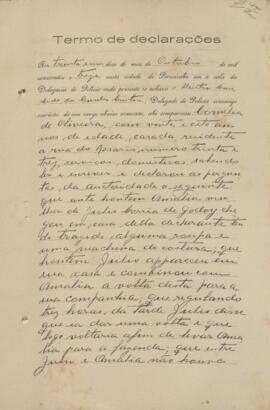 Termo de declarações
Aos trinta e um dias do mez de Outubro de mil
novecentos e treze nesta cidade de Piracicaba em a sala da
Delegacia de Policia onde presente se achava o Doutor
Delegado de Policia, commigo
escrivão de seu cargo abaixo nomeado, ahi compareceu
de Oliveira, com vinte e oito an
nos de edade, casada, residente
á rua do Rosario numero trinta e
tres, serviços domesticos, sabendo
ler e escrever e declarou ás pergun
tas da autoridade o seguinte:
que ante hontem Amalia mu
lher de Julio Corrêa de Godoy che
gou em casa della declarante ten
do trazido alguma roupa e
uma machina de costura; que
hontem Julio appareceu em
sua casa e combinou com
Amalia a volta desta para a
sua companhia; que
tres horas da tarde Julio disse
que ia dar uma volta e que
logo voltaria afim de levar Ama
lia para a fazenda; que entre
Julio e Amalia não houve